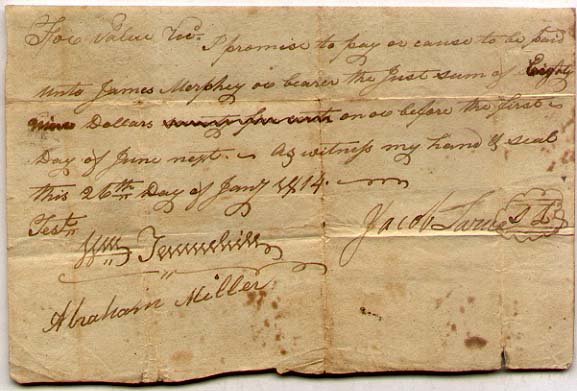 For Value Recd.
I promise to pay or cause to be paid
unto James Morphey or bearer the Just sum of Eighty
nine Dollars on or before the first
Day of June next. As witness my hand & seal
this 26th Day of Jany 1814.
Testn
Wm Tannehill
Abraham Miller
Jacob